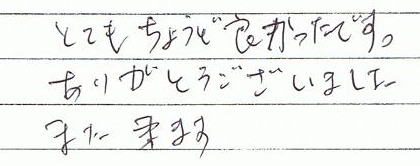 とてもちょうど良かったです。
ありがとうございました
また来ます